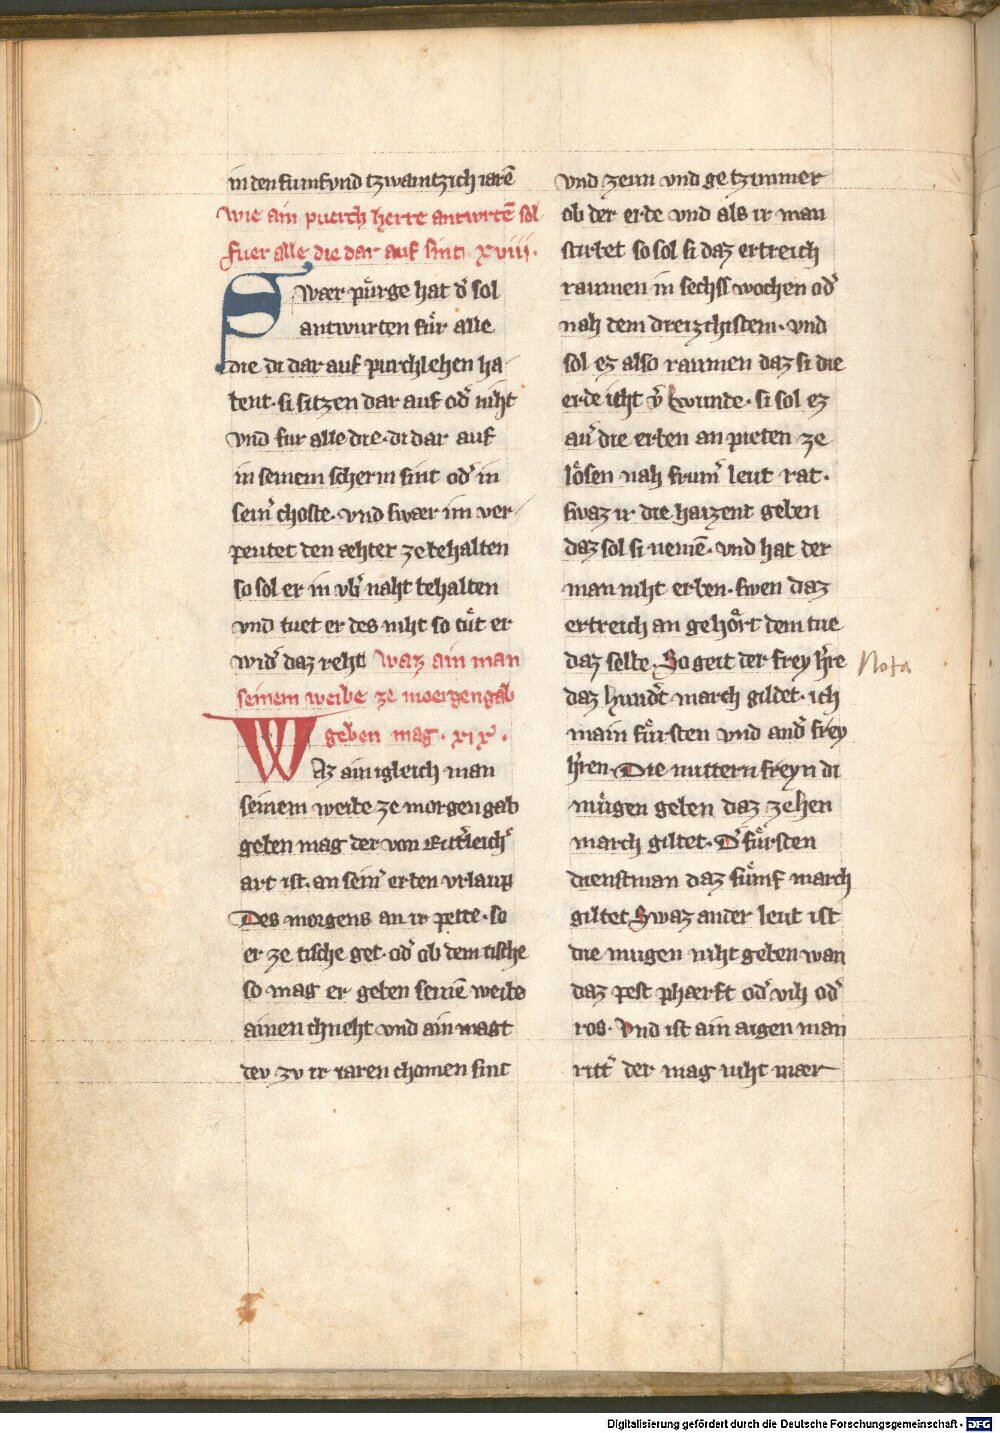 in den fumf vnd tzwaintzich iarē
wie ain purch herre antwrtē sol
fuer alle die dar auf sint xviii.
Swær pu̇rge hat d' sol
antwurten fu̇r alle
die di dar auf purchlehen ha-
bent. si sitzen dar auf od' niht
vnd fur alle die. di dar auf
in seinem scherm sint od' in
sein' choste. vnd swær im ver-
peutet den æhter ze behalten
so sol er in vb' naht behalten
vnd tuet er des niht so tůt er
wid' daz reht Waz ain man
seinem weibe ze moergengab
geben mag. xix.
Waz ain igleich man
seinem weibe ze morgen gab
geben mag der von Ritt'leich'
art ist. an sein' erben vrlaup
Des morgens an ir pette. so
er ze tische get. od' ob dem tische
so mag er geben seinē weibe
ainen chneht vnd ain magt
dev zv ir iaren chomen sint
vnd zeun vnd getzimmer
ob der erde vnd als ir man
stirbet so sol si daz ertreich
raumen in sechss wochen od'
nah dem dreizzhistem. vnd
sol ez also raumen daz si die
erde iht v'wunde. si sol ez
au' die erben an pieten ze
lo̊sen nah frum' leut rat.
swaz ir die haizent geben
daz sol si nemē. vnd hat der
man niht erben. swen daz
ertreich an geho̊rt dem tue
daz selbe. So geit der frey h're
Nota
daz hund't march gildet. ich
main fu̇rsten vnd and' frey
h'ren. Die mittern freyn di
mu̇gen geben daz zehen
march giltet. D' fu̇rsten
dienstman daz fu̇mf march
giltet Swaz ander leut ist
die mugen niht geben wan
daz pest phærft od' vih od'
ros. Vnd ist ain aigen man
ritt' der mag niht mær
Digitalisierung gefördert durch die Deutsche Forschungsgemeinschaft - DFG